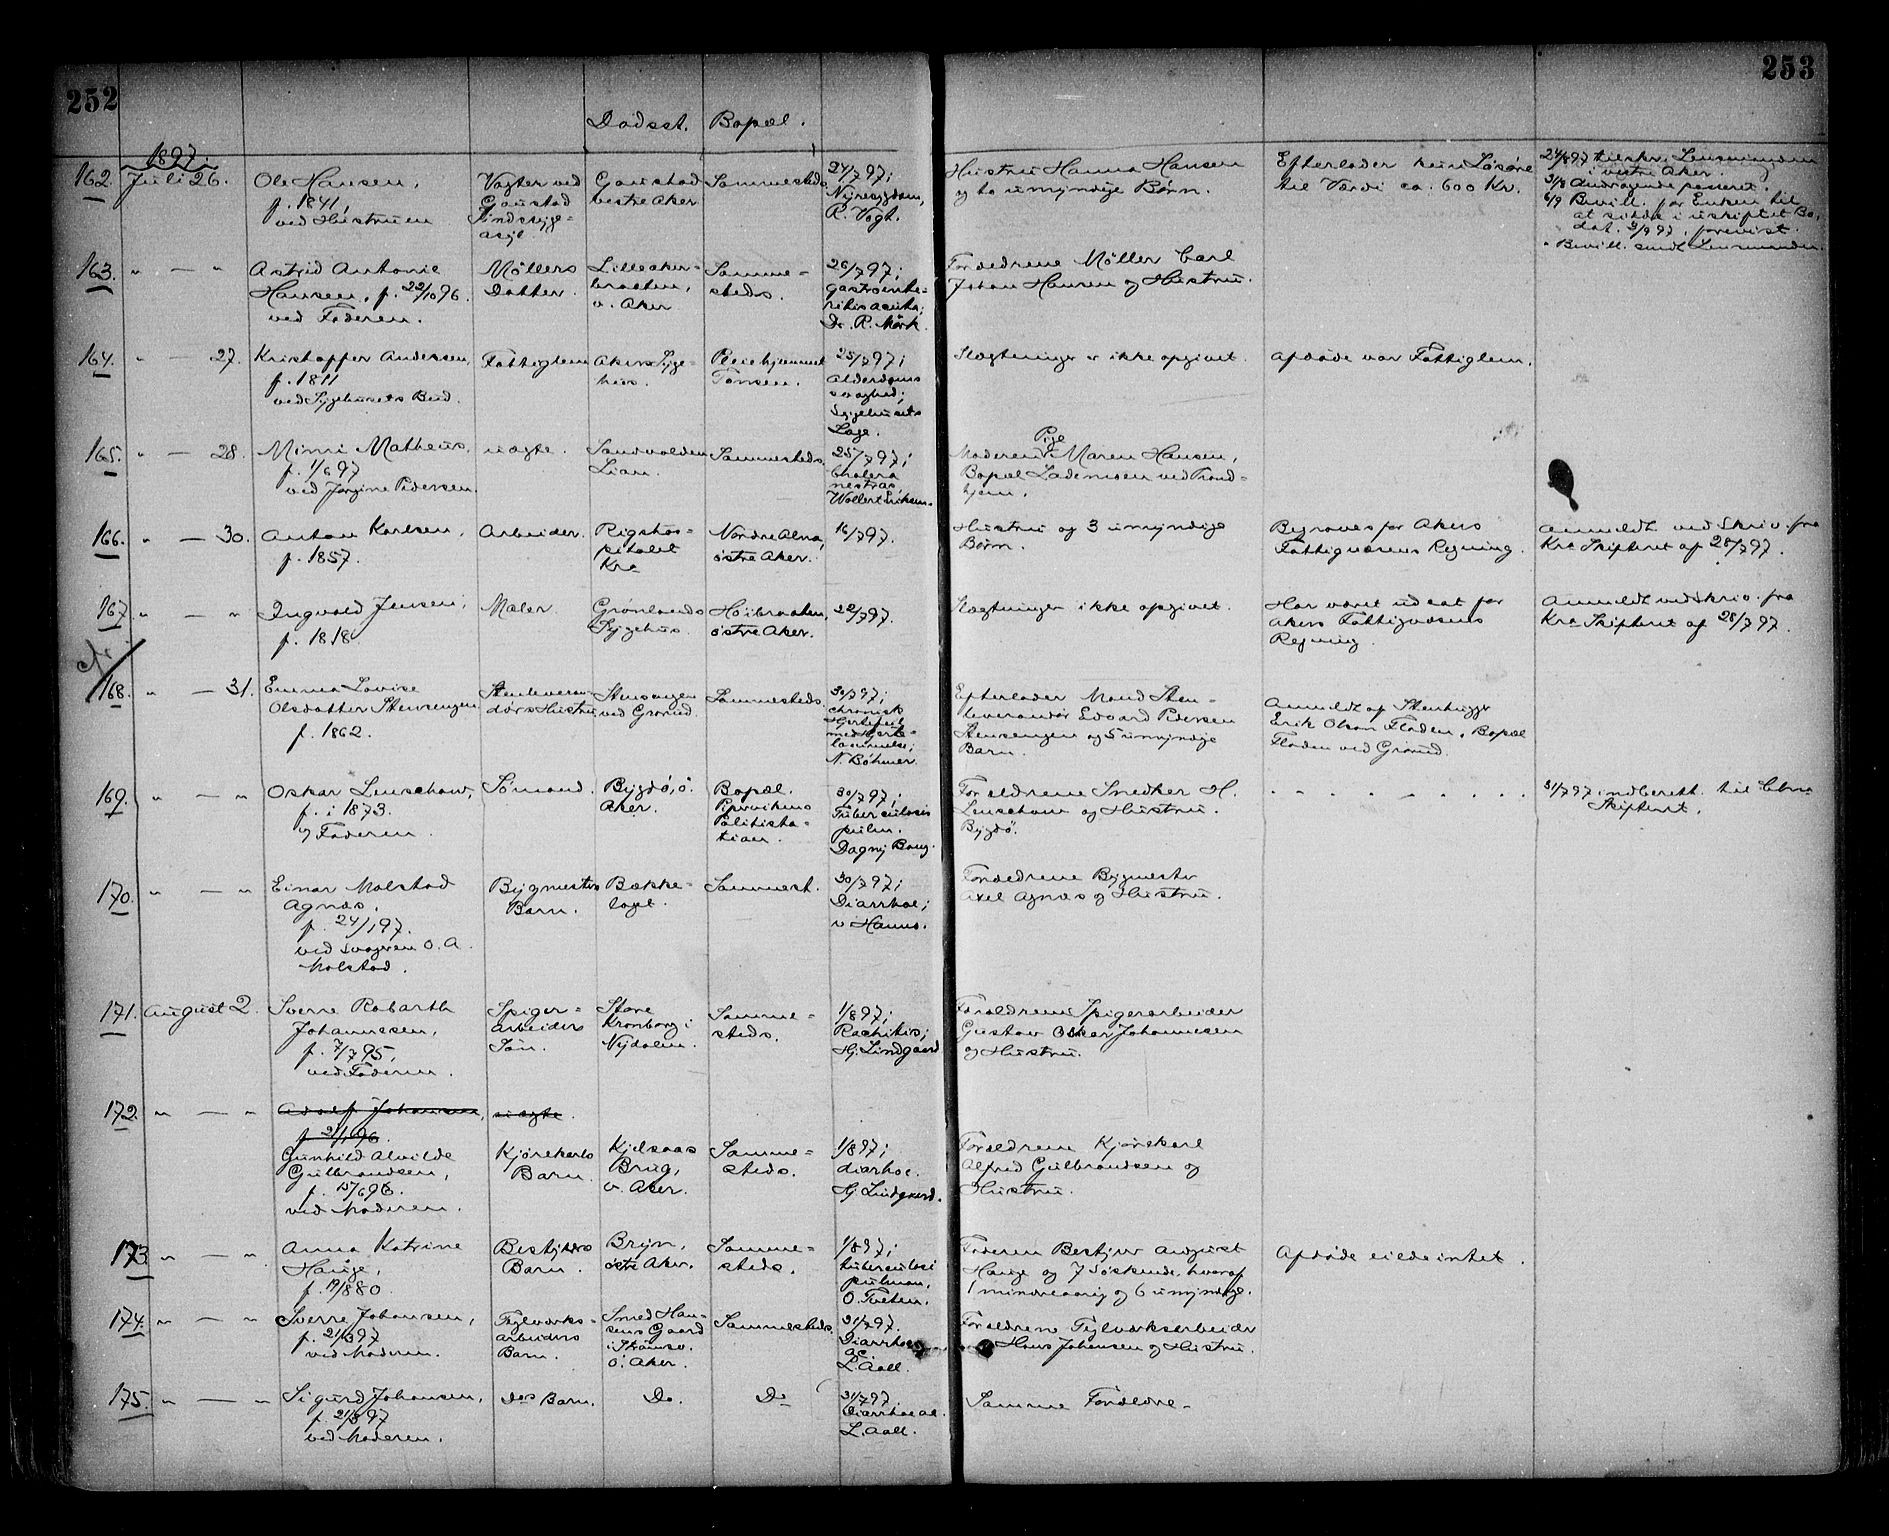 252
253
Dødsst. Bopæl.
1897.
162. Juli 26. Ole Hansen, f. 1841, ved Hustruen
Vagter ved Gaustad Sindssyge= asyl.
Gaustad vestre Aker
Sammesteds
24/7 97; Nyresygdom, R. Vogt.
Hustru Hanna Hansen
og to umyndige Børn.
Efterlader kun Løsøre
til Værdi ca. 600 Kr.
24/8 97 tilskr. Lensmanden
i vestre Aker.
31/8 Andragende passeret.
6/9 Bevill. for Enken til
at sidde i uskiftet Bo,
dat. 3/9 97, forevist.
" Bevill. sendt Lensmanden.
163. " — " Astrid Antonie
Hansen, f. 22/10 96.
ved Faderen.
Møllers Datter.
Lilleaker= braaten, v. Aker
Samme= steds.
26/7 97; gastroente= ritis acuta; Dr. R. Mørk.
Forældrene Møller Carl
Johan Hansen og Hustru.
164. " — 27. Kristoffer Andersen,
f. 1811
ved Sygehusets Bud.
Fattiglem
Akers Syge= hus.
Pleiehjemmet Tonsen.
25/7 97; Alderdoms svaghed; Sygehusets Læge.
Slægtninger er ikke opgivet.
Afdøde var Fattiglem.
165. " — 28. Mimi Matheus,
f. 1/6 97
ved Jørgine Pedersen.
uægte.
Sandvolden Lian.
Sammesteds.
25/7 97; Cholera nostras, Wollert Eriksen.
Moderen Pige Maren Hansen,
Bopæl Lademoen ved Trond=
hjem.
166. " — 30. Anton Karlsen,
f. 1857.
Arbeider.
Rigshos= pitalet Kra
Nordre Alna, østre Aker.
16/7 97.
Hustru og 3 umyndige
Børn.
Begraves for Akers
Fattigvæsens Regning.
Anmeldt ved Skriv. fra
Kra Skifteret af 28/7 97.
167. " — " Ingvald Jensen,
f. 1818
Maler.
Grønlands Sygehus.
Høibraaten, østre Aker.
22/7 97.
Slægtninger ikke opgivet.
Har været udsat for
Akers Fattigvæsens
Regning.
Anmeldt ved Skriv. fra
Kra Skifteret af 28/7 97.
168. " — 31. Emma Lovise
Olsdatter Stensengen
f. 1862.
Stenleveran= dørs Hustru
Stensengen ved Grorud.
Sammesteds.
30/7 97; chronisk Hjertefeil med Hjerte= lammelse; N. Bøhmer.
Efterlader Mand Sten=
leverandør Edvard Pedersen
Stensengen og 5 umyndige
Børn.
Anmeldt af Stenhugger
Erik Olsen Fladen, Bopæl
Fladen ved Grorud.
169. " — " Oskar Lenschow,
f. i 1873.
v Faderen.
Sømand.
Bygdø, ø. Aker.
Bopæl. Pipervikens Politista= tion.
30/7 97; Tuberculosis pulm. Dagny Bang.
Forældrene Snedker H.
Lenschow og Hustru.
Bygdø.
31/7 97 indberett. til Chra
Skifteret.
170. " — " Einar Molstad
Agnæs,
f. 24/1 97.
ved Svogeren O. A.
Molstad.
Bygmesters Barn.
Bække= laget.
Sammest.
30/7 97; Diarrhoe; v Hanno.
Forældrene Bygmester
Axel Agnæs og Hustru.
171. August 2. Sverre Robarth
Johannesen,
f. 7/7 95,
ved Faderen.
Spiger= arbeiders Søn.
Store Kronborg i Nydalen.
Samme= steds.
1/8 97; Rachitis; Hj. Lindgaard
Forældrene Spigerarbeider
Gustav Oskar Johannesen
og Hustru.
172. " — " Adolf Johansen, uægte.
f 21/1 96.
Gunhild Alvilde
Gulbrandsen,
f. 15/6 96.
ved Moderen.
Kjørekarls Barn.
Kjelsaas Brug, v. Aker.
Samme= steds.
1/8 97; diarhoe. Hj. Lindgaard.
Forældrene Kjørekarl
Alfred Gulbrandsen og
Hustru.
173 " — " Anna Katrine
Hauge,
f. 19/8 80.
Bestyrers Barn.
Bryn, østre Aker.
Samme= steds.
1/8 97; tuberculosi pulmon, O. Tveten.
Faderen Bestyrer August
Hauge og 7 Søskende, hvoraf
1 mindreaarig og 6 umyndige.
Afdøde eiede intet.
174. " — " Sverre Johansen,
f. 21/3 97
ved Moderen.
Teglværks= arbeiders Barn.
Smed Han= sens Gaard i Strømsv. ø. Aker.
Sammesteds.
31/7 97. Diarrhoe ac. L. Aall.
Forældrene Teglværksarbeider
Hans Johansen og Hustru.
175. " — " Sigurd Johansen,
f. 21/3 97
ved Moderen.
Dos Barn.
Do.
Do
31/7 97. Diarrhoe ac. L. Aall.
Samme Forældre.